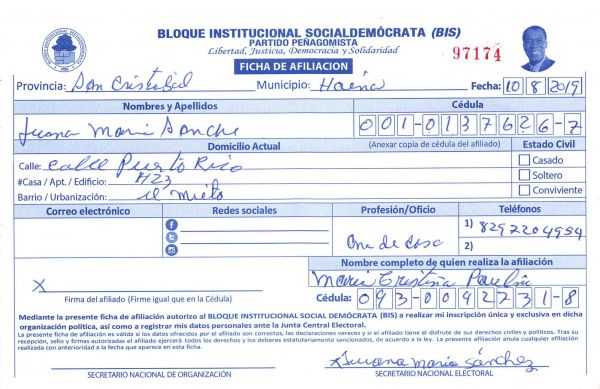 BLOQUE INSTITUCIONAL SOCIALDEMÓCRATA (BIS)
PARTIDO PEÑAGOMISTA
Libertad, Justicia, Democracia y Solidaridad
97174
FICHA DE AFILIACION
Provincia: San Cristobal Municipio: Haina Fecha: 10/8/2019
Nombres y Apellidos Cédula
Juana Maria Sanche 001-0137626-7
Domicilio Actual (Anexar copia de cédula del afiliado) Estado Civil
Calle: Calle Puerto Rico Casado
#Casa / Apt. / Edificio: #23 Soltero
Barrio / Urbanización: Conviviente
Correo electrónico Redes sociales Profesión/Oficio Teléfonos
Ama de casa 1) 8292204954
2)
Nombre completo de quien realiza la afiliación
X Maria Cristina
Firma del afiliado (Firme igual que en la Cédula) Cédula: 093-0042231-8
Mediante la presente ficha de afiliación autorizo al BLOQUE INSTITUCIONAL SOCIAL DEMÓCRATA (BIS) a realizar mi inscripción única y exclusiva en dicha
organización política, así como a registrar mis datos personales ante la Junta Central Electoral.
La presente ficha de afiliación es válida si los datos ofrecidos por el afiliado son correctos, las declaraciones veraces y si el afiliado tiene el disfrute de sus derechos civiles y políticos. Tras su
recepción, sello y firmas autorizadas el afiliado ejercerá todos los derechos y los deberes estatutariamente sancionados, de acuerdo a la ley. La presente afiliación anula cualquier afiliación
realizada con anterioridad a la fecha que aparece en esta ficha.
X Juana Maria Sánchez
SECRETARIO NACIONAL DE ORGANIZACIÓN SECRETARIO NACIONAL ELECTORAL